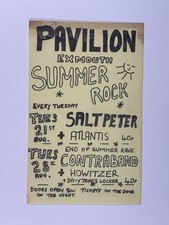 PAVILION
EXMOUTH
SUMMER
ROCK
EVERY TUESDAY
TUES
21ST
AUG.
SALTPETER
+ ATLANTIS 40p
OR
END OF SUMMER RAVE
TUES
28th
AUG.
CONTRABAND
+ HOWITZER
+ DAVY JONES LOCKER 40p
DOORS OPEN 8pm. TICKETS ON THE DOOR
ON THE NIGHT.